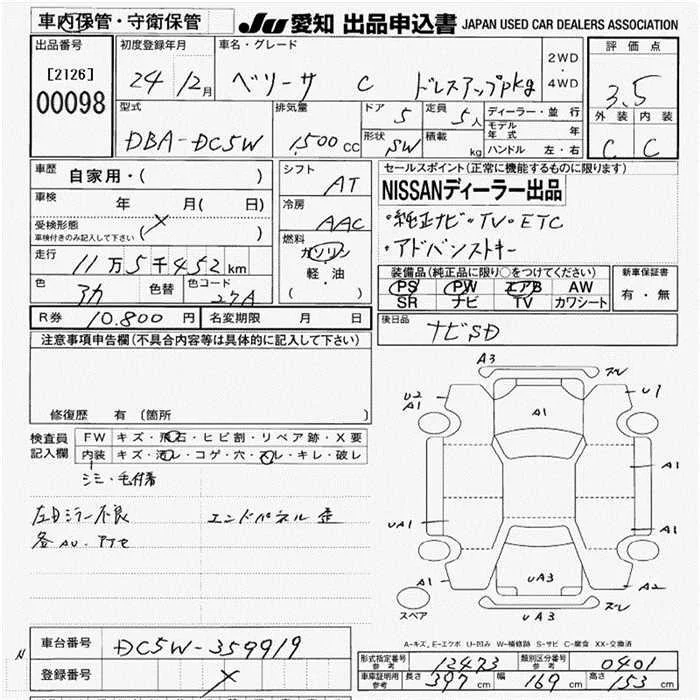 車内保管・守衛保管
JU 愛知 出品申込書 JAPAN USED CAR DEALERS ASSOCIATION
出品番号 [2126] 00098
初度登録年月 24 12月
車名・グレード ベリーサ C ドレスアップpkg
2WD・4WD
評価点 3.5
外装 内装
C C
型式 DBA-DC5W
排気量 1,500 CC
ドア 5 定員 5人
形状 SW 積載 kg
ディーラー・並行
モデル年式 年
ハンドル 左・右
車歴 自家用・( )
車検 年 月( 日)
受検形態 ( )
車検付きのみ記入して下さい
走行 11万5千452km
色 アカ 色替 色コード 27A
R券 10,800円 名変期限 月 日
シフト AT
冷房 AAC
燃料 ガソリン
軽・油
( )
セールスポイント(正常に機能するものに限ります)
NISSANディーラー出品
・純正ナビ・TV・ETC
・アドバンストキー
装備品(純正品に限り○をつけてください)
PS PW エアB AW
SR ナビ TV カワシート
新車保証書
有・無
後日品 ナビSD
注意事項申告欄(不具合内容等は具体的に記入して下さい)
修復歴 有(箇所
検査員記入欄
FW キズ・飛石・ヒビ割・リペア跡・X要
内装 キズ・汚レ・コゲ・穴・スレ・キレ・破レ
シミ・毛付着
左Dミラー不良 エンドパネル歪
各AU・アセ
A3
スレ
U2
A1
U1
A1
A1
UA1
A1
A1
UA3
A2
UA3
スレ
スペア
A-キズ、E-エクボ U-凹み W-補修跡 S-サビ C-腐食 XX-交換済
車台番号 DC5W-359919
登録番号
N
形式指定番号 参考 12473 類別区分番号 参考 0401
車庫証明用 参考 長さ 397cm 幅 169cm 高さ 153cm